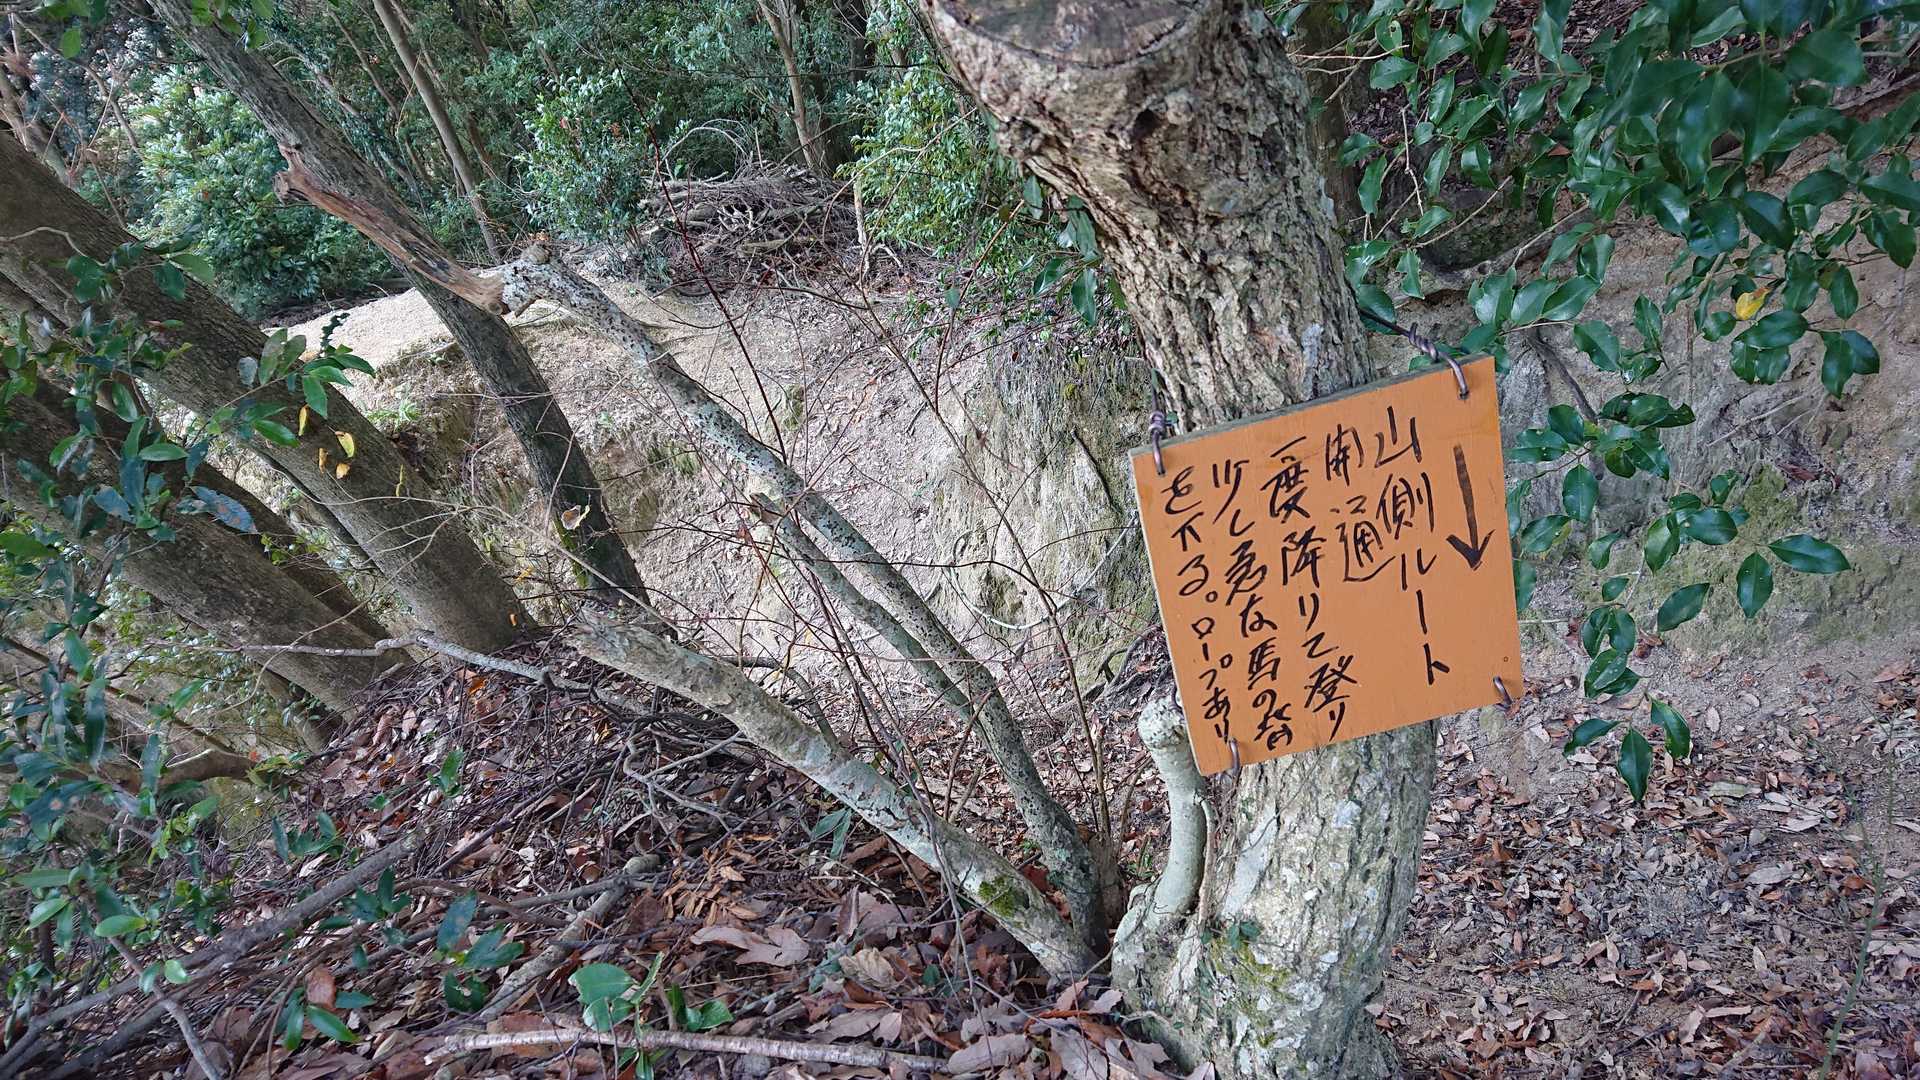 ↓
山側ルート
開通
一度降りて登り
少し急な馬の背
を下る。ロープあり